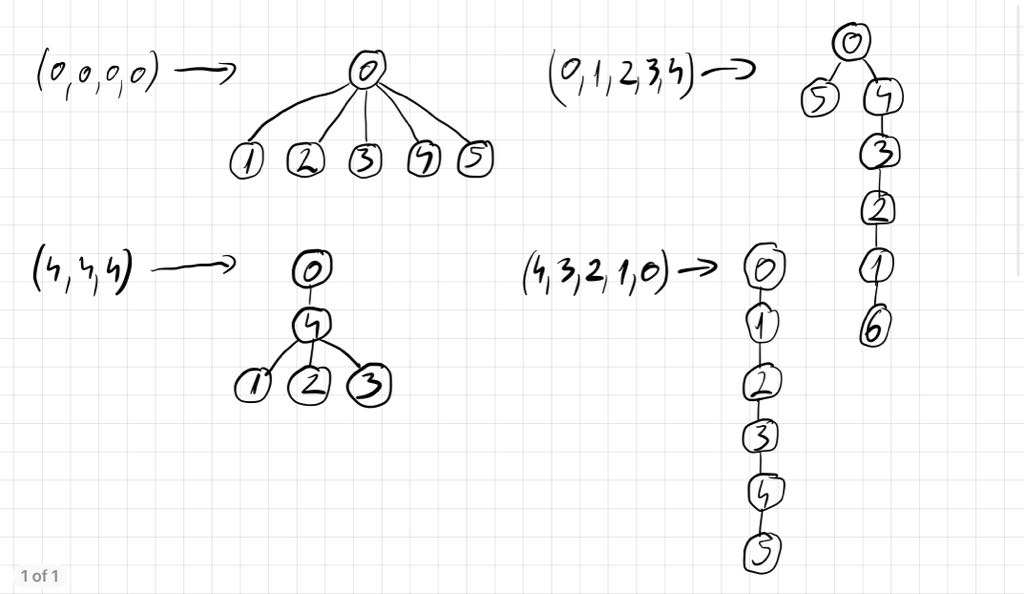 (0,0,0,0) →
0
1 2 3 4 5
(0,1,2,3,4) →
0
5 4
3
2
1
6
(4,4,4) →
0
4
1 2 3
(4,3,2,1,0) →
0
1
2
3
4
5
1 of 1